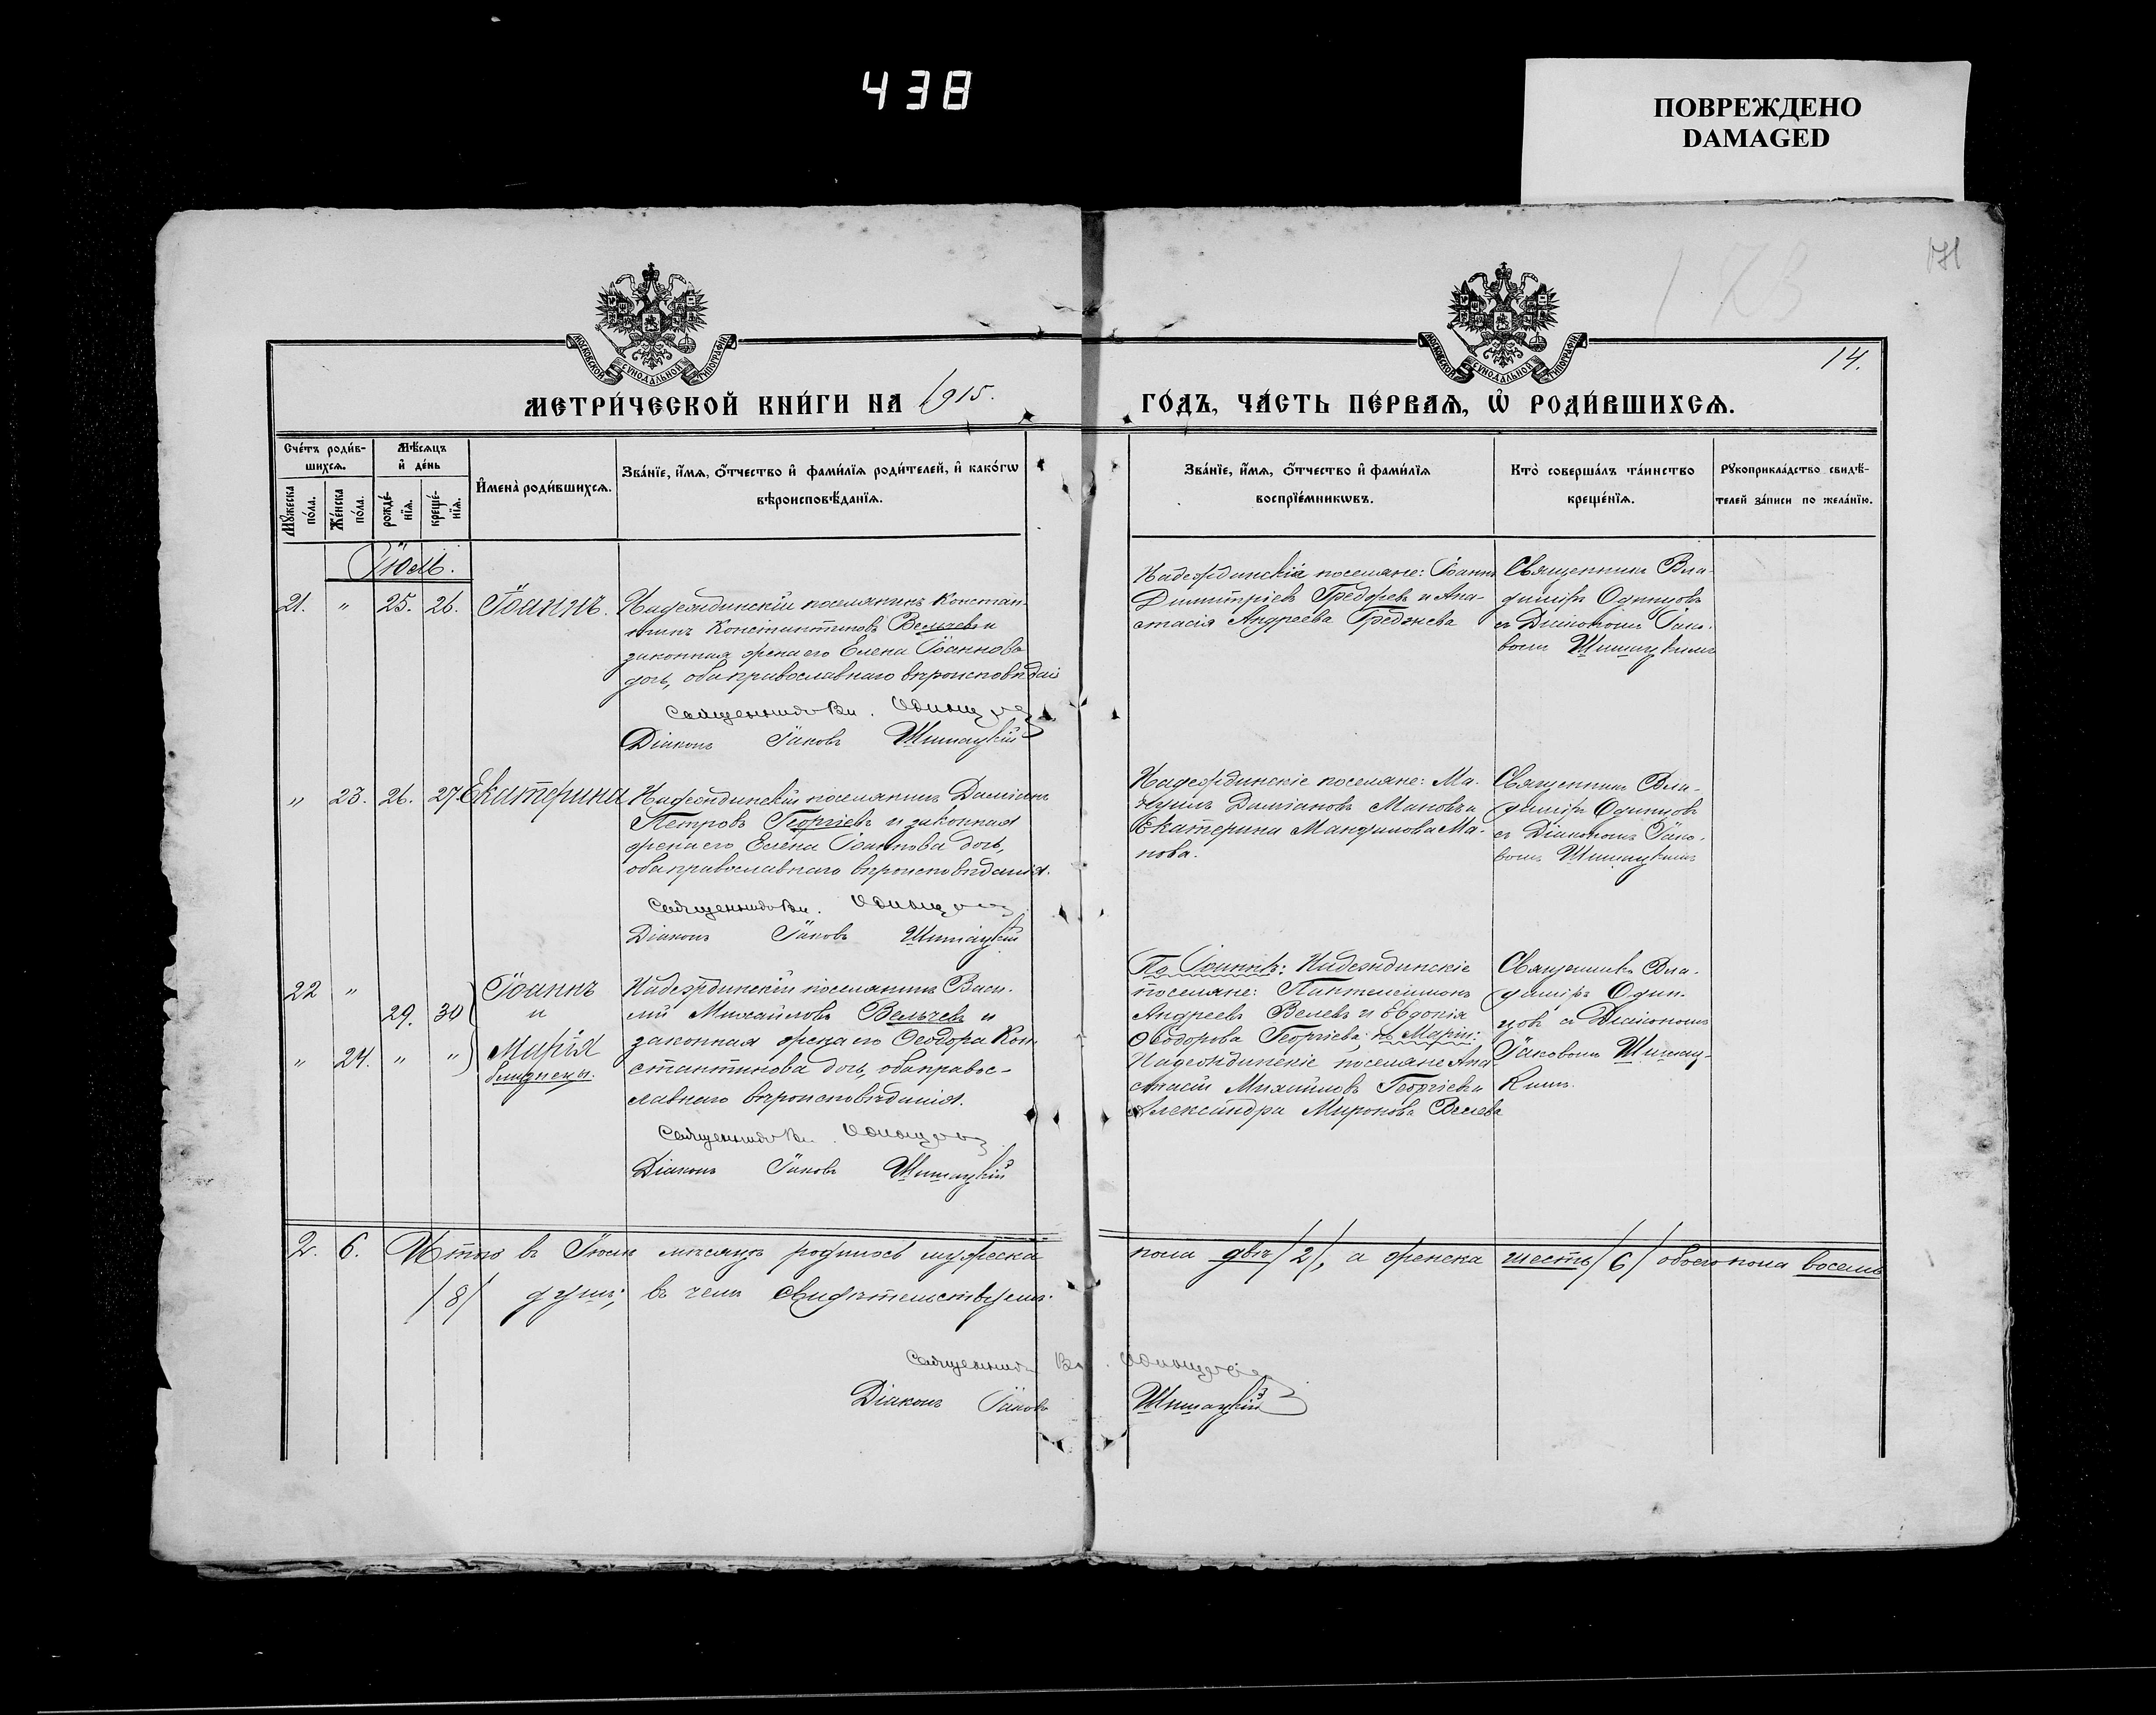 438
ПОВРЕЖДЕНО
DAMAGED
171
173
14.
МОСКОВСКОЙ СѴНОДАЛЬНОЙ ТИПОГРАФІИ
МОСКОВСКОЙ СѴНОДАЛЬНОЙ ТИПОГРАФІИ
МЕТРИ́ЧЕСКОЙ КНИ́ГИ НА 1915.
ГО́ДЪ, ЧА́СТЬ ПЕ́РВАѦ, Ѡ҆ РОДИ́ВШИХСѦ.
Сче́тъ роди́в-
шихсѧ.
Мꙋ́жеска
по́ла.
Же́нска
по́ла.
Мѣ́сѧцъ
и҆ де́нь
рожде́-
нїѧ.
креще́-
нїѧ.
И҆мена̀ роди́вшихсѧ.
Зва́нїе, и҆́мѧ, ѻ҆́тчество и҆ фами́лїѧ роди́телей, и҆ како́гѡ
вѣроисповѣ́данїѧ.
Зва́нїе, и҆́мѧ, ѻ҆́тчество и҆ фами́лїѧ
воспрїе́мникѡвъ.
Кто̀ соверша́лъ та́инство
креще́нїѧ.
Рꙋкоприкла́дство свидѣ́-
телей за́писи по жела́нїю.
Іюль.
21. " 25. 26. Іоаннъ.
Надеждинскій поселянинъ Констан-
тинъ Константиновъ Вельчевъ и
законная жена его Елена Іоаннова
дочь, оба православнаго вѣроисповѣданія
Священникъ Вл. Одинцовъ
Діаконъ Іаковъ Шишацкій
Надеждинскіе поселяне: Іоаннъ
Димитріевъ Греджевъ и Ана-
стасія Андреева Греджева
Священникъ Вла-
диміръ Одинцовъ
съ Діакономъ Іако-
вомъ Шишацкимъ
" 23. 26. 27. Екатерина
Надеждинскій поселянинъ Даміанъ
Петровъ Георгіевъ и законная
жена его Елена Іоаннова дочь,
оба православнаго вѣроисповѣданія.
Священникъ Вл. Одинцовъ
Діаконъ Іаковъ Шишацкій
Надеждинскіе поселяне: Ма-
Даміановъ Мановъ и
Екатерина Ма-
нова.
Священникъ Вла-
диміръ Одинцовъ
съ Діакономъ Іако-
вомъ Шишацкимъ
22 " 29. 30 Іоаннъ
и
" 24. " " Марія
близнецы.
Надеждинскій поселянинъ Васи-
лій Михайловъ Вельчевъ и
законная жена его Ѳеодора Кон-
стантинова дочь, оба правос-
лавнаго вѣроисповѣданія.
Священникъ Вл. Одинцовъ
Діаконъ Іаковъ Шишацкій
По Іоаннѣ: Надеждинскіе
поселяне: Пантелеимонъ
Андреевъ Велевъ и Евдокія
Ѳеодорова Георгіева; по Маріи:
Надеждинскіе поселяне Ана-
стасій Михайловъ Георгіевъ и
Александра Миронова Велева
Священникъ Вла-
диміръ Один-
цовъ съ Діакономъ
Іаковомъ Шишац-
кимъ.
2. 6. Итого въ Іюлѣ мѣсяцѣ родилось мужеска пола двѣ /2/, а женска шесть /6/ обоего пола восемь
/8/ душъ; въ чемъ свидѣтельствуемъ:
Священникъ Вл. Одинцовъ
Діаконъ Іаковъ Шишацкій